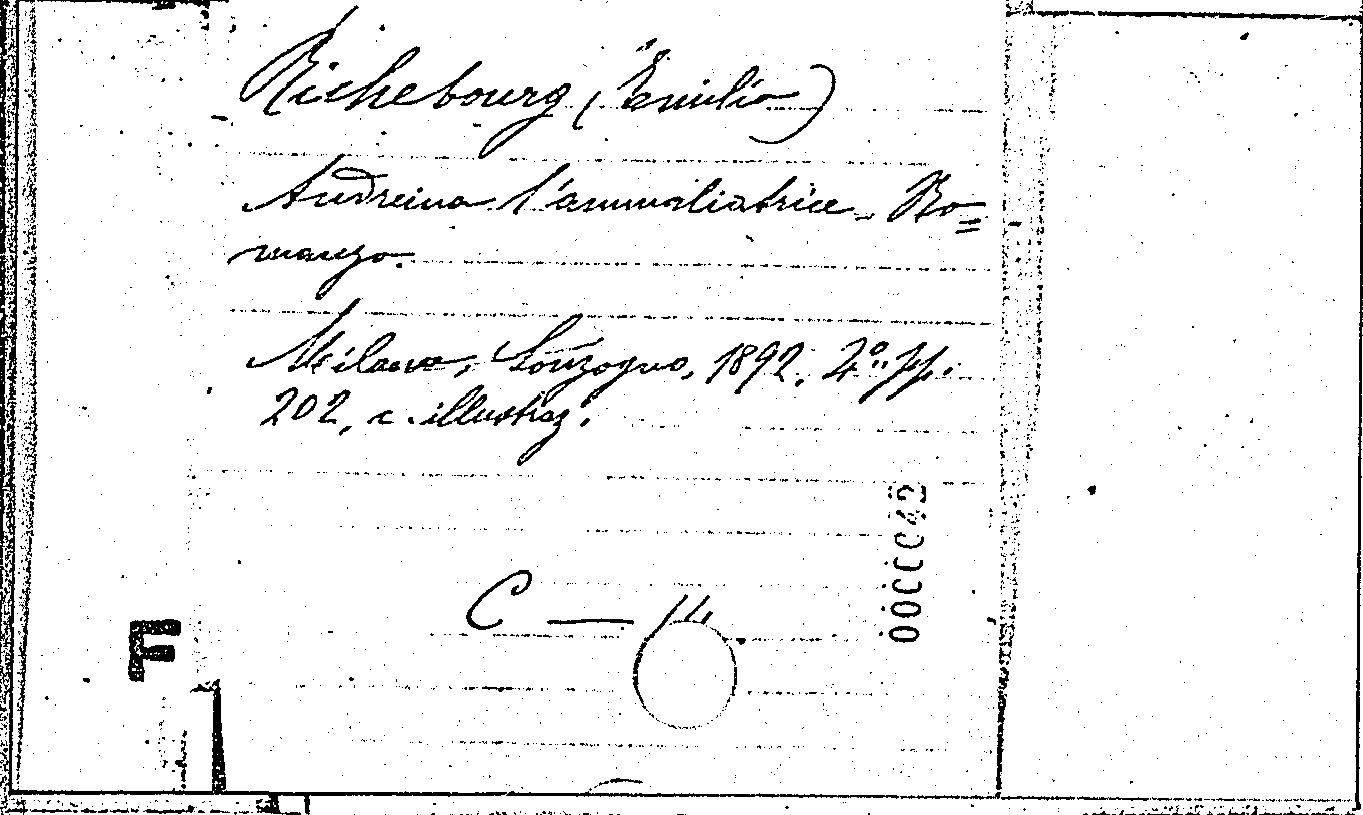 Richebourg (Emilio)
Andreina l'ammaliatrice. Ro=
manzo.
Milano, Sonzogno, 1892, 4°. pp.
202, c. illustraz.
C — 14
F